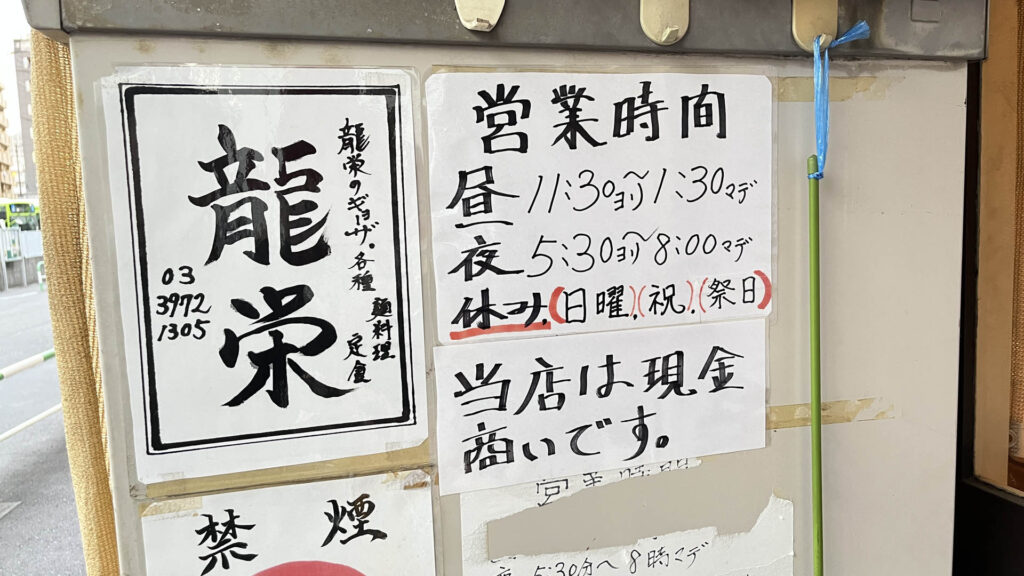 龍栄
龍栄のギョーザ.各種
麺料理
定食
03
3972
1305
営業時間
昼 11:30ヨリ〜1:30マデ
夜 5:30ヨリ〜8:00マデ
休み.(日曜).(祝).(祭日)
当店は現金
商いです。
営業時間
5:30分へ8時マデ
禁煙